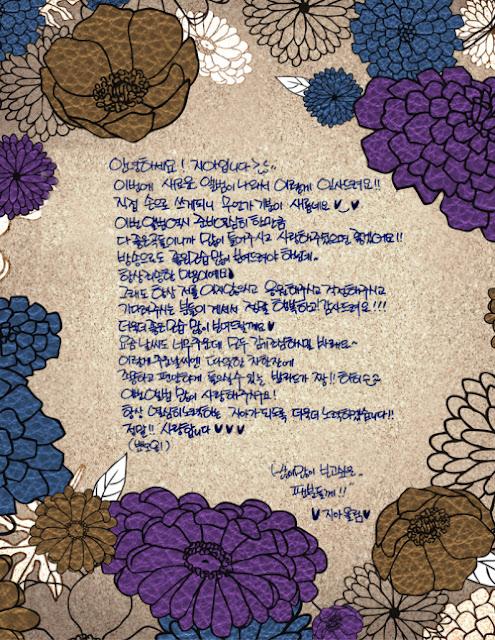 안녕하세요! 지아입니다 >_<
이번에 새로운 앨범이 나와서 이렇게 인사드려요!!
직접 손으로 쓰게되니 무언가 기분이 새롭네요
이번 앨범 역시 준비 열심히 한만큼
다 좋은곡들이니까 많이 들어주시고 사랑해주셨으면 좋겠어요!!
방송으로도 좋은모습 많이 보여드려야 하는데..
항상 죄송한 마음이에요♥
그래도 항상 저를 잊지않으시고 응원해주시고 걱정해주시고
기다려주시는 분들이 계셔서 정말 행복하고! 감사드려요!!!
더욱더 좋은모습 많이 보여드릴께요♥
요즘 날씨도 너무추운데 모두 감기조심하길 바래요~
이렇게 추운날씨엔 따뜻한 차한잔에
조용하고 편안하게 들으실수 있는 발라드가 짱!! 하하
이번앨범 많이 사랑해주세요!
항상 열심히노력하는 지아가 되도록 더욱더 노력하겠습니다!!
정말!! 사랑합니다 ♥♥♥
(뿅!)
많이많이 보고싶은
팬분들께!!
♥지아올림♥